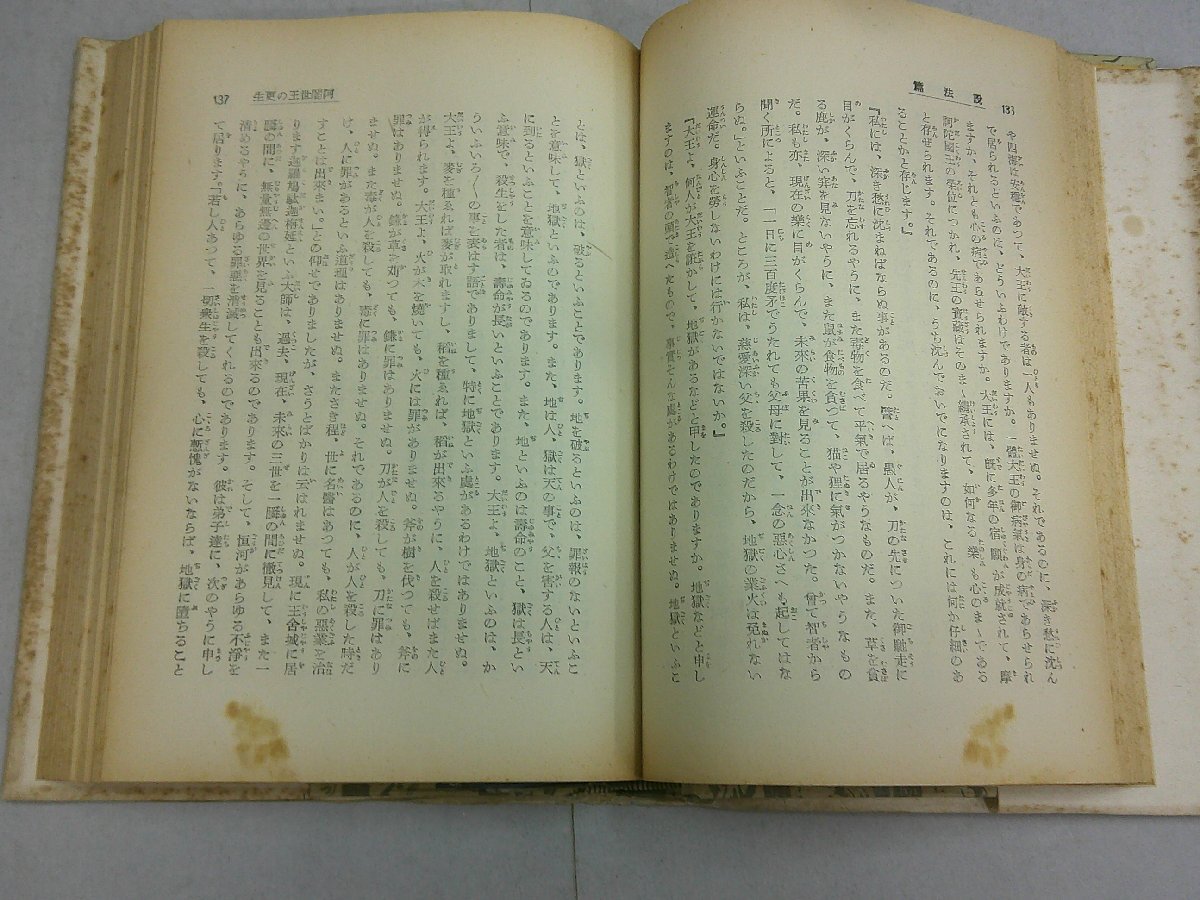 説法篇
や四隣は安穩であつて、大王に敵する者は一人もありませぬ。それであるのに、深き愁に沈ん
で居られるといふのは、どういふわけでありますか。一體大王の御病氣は身の病であらせられ
ますか、それとも心の病であらせられますか。大王には、既に多年の宿願が成就されて、摩
阿陀國王の榮位につかれ、先王の寶藏はそのまゝ繼承されて、如何なる樂も心のまゝである
と存ぜられます。それであるのに、うち沈んでおいでになりますのは、これには何か仔細のあ
ることかと存じます。』
『私には、深き愁に沈まねばならぬ事があるのだ。譬へば、愚人が、刀の先についた御馳走に
目がくらんで、刀を忘れるやうに、また毒物を食べて平氣で居るやうなものだ。また、草を食
る鹿が、深い穽を見ないやうに、また鼠が食物を食つて、猫や狸に氣がつかないやうなもの
だ。私も亦、現在の樂に目がくらんで、未來の苦果を見ることが出來なかつた。曾て智者から
聞く所によると、「一日に三百度矛でうたれても父母に對して、一念の惡心さへも起してはな
らぬ。」といふことだ。ところが、私は、慈愛深い父を殺したのだから、地獄の業火は免れない
運命だ。身心を勞しないわけには行かないではないか。』
『大王よ、何人が大王を誑かして、地獄があるなどと申したのでありますか。地獄など と申し
ますのは、智者の頭で造へたもので、事實そんな處があるわけではありませぬ。地獄といふこ
阿闍世王の更生
137
とは、獄といふのは、破るといふことであります。地を破るといふのは、罪報のないといふこ
とを意味して、地獄といふのであります。また、地は人、獄は天の事で、父を害する人は、天
に到るといふことを意味してゐるのであります。また、地といふのは壽命のこと、獄は長とい
ふ意味で、殺生をした者は、壽命が長いといふことであります。大王よ、地獄といふのは、か
ういふいろ〳〵の事を表はす語でありまして、特に地獄といふ處があるわけではありませぬ。
大王よ、麥を種ゑれば麥が取れますし、稻を種ゑれば、稻が出來るやうに、人を殺せばまた人
が得られます。大王よ、火が木を燒いても、火には罪がありませぬ。斧が樹を伐つても、斧に
罪はありませぬ。鎌が草を刈つても、鎌に罪はありませぬ。刀が人を殺しても、刀に罪はあり
ませぬ。また毒が人を殺しても、毒に罪はありませぬ。それであるのに、人が人を殺した時だ
け、人に罪があるといふ道理はありませぬ。またさき程、世に名醫はあつても、私の惡業を治
すことは出來まい。」との仰せでありましたが、さうとばかりは云はれませぬ。現に王舍城に居
ります迦羅鳩駄迦栴延といふ大師は、過去、現在、未來の三世を一瞬の間に徹見して、また一
瞬の間に、無量無邊の世界を見ることも出來るのであります。そして、恒河があらゆる不淨を
清めるやうに、あらゆる罪惡を消滅してくれるのであります。彼は弟子達に、次のやうに申し
て居ります。「若し人あつて、一切衆生を殺しても、心に慙愧がないならば、地獄に墮ちること